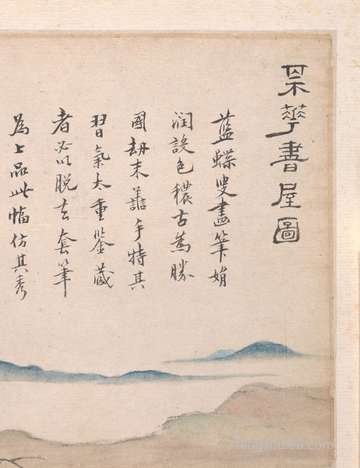 華書屋圖
藍蝶叟畫筆娟
潤設色穠古為勝
國末手特其
習氣太重鑒藏
者必以脫去套筆
為上品此幅仿其秀